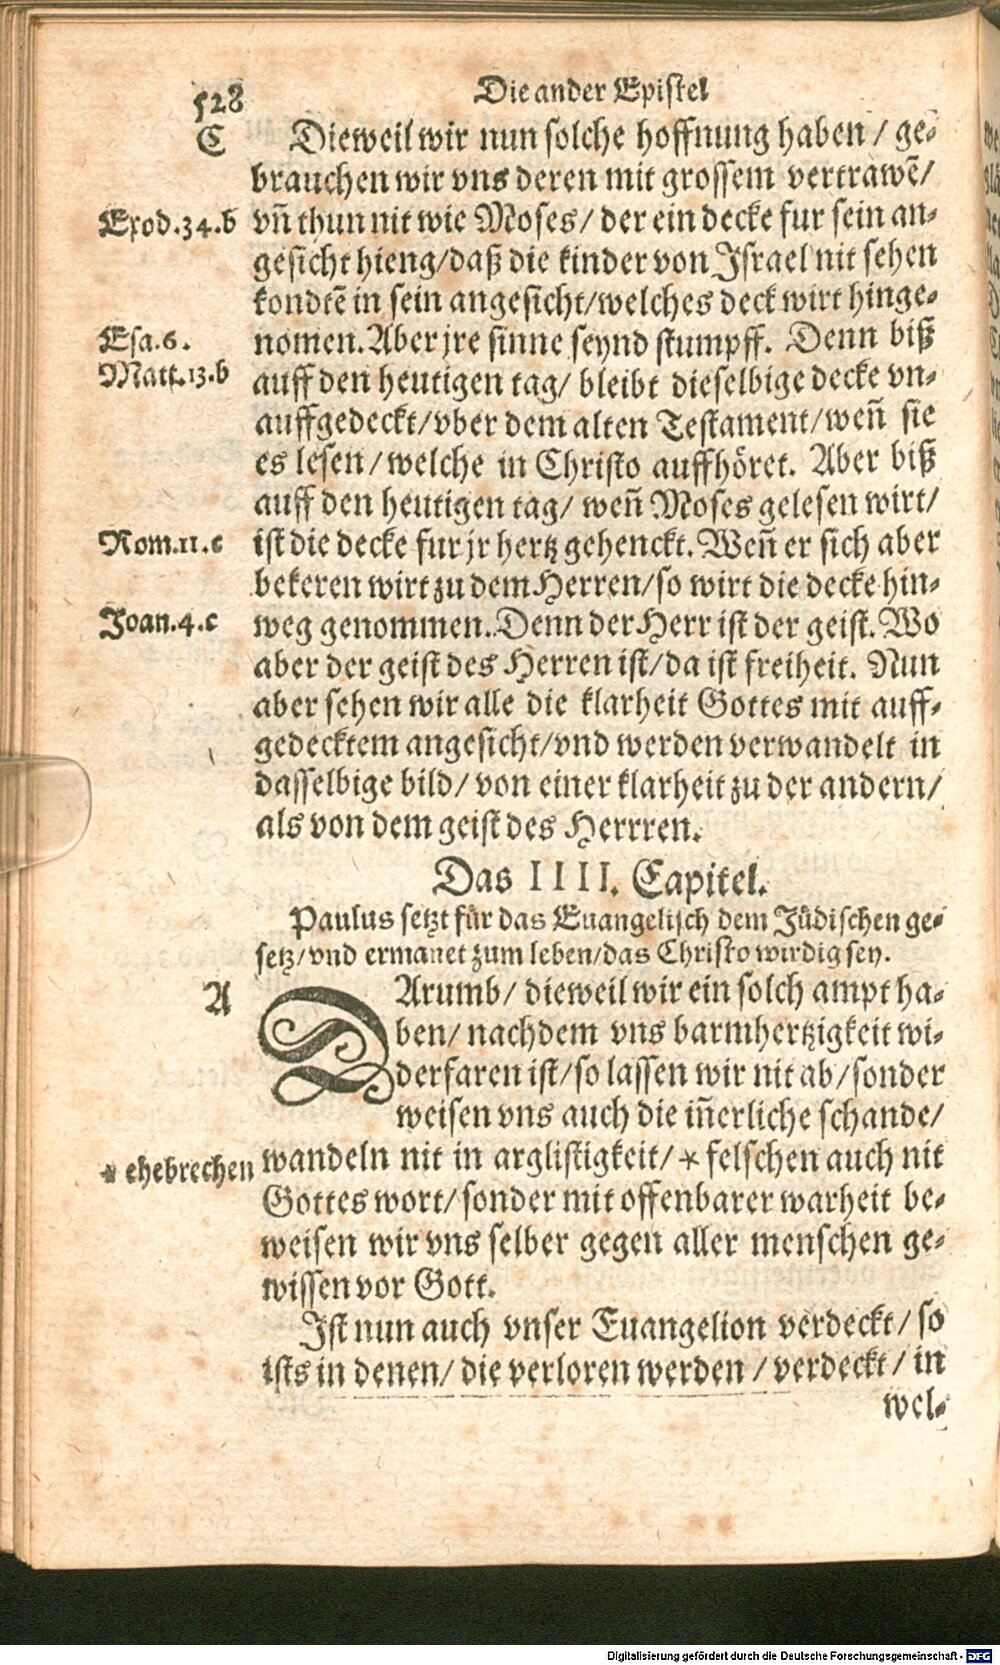 528
Die ander Epistel
C
Dieweil wir nun solche hoffnung haben / ge-
brauchen wir vns deren mit grossem vertrawē/
Exod.34.b
vñ thun nit wie Moses/ der ein decke fur sein an-
gesicht hieng/daß die kinder von Israel nit sehen
kondtē in sein angesicht/welches deck wirt hinge-
Esa.6.
nomen. Aber jre sinne seynd stumpff. Denn biß
Matt.13.b
auff den heutigen tag/ bleibt dieselbige decke vn-
auffgedeckt/vber dem alten Testament/weñ sie
es lesen/welche in Christo auffhöret. Aber biß
auff den heutigen tag/ weñ Moses gelesen wirt/
Rom.11.c
ist die decke fur jr hertz gehenckt. Weñ er sich aber
bekeren wirt zu dem Herren/so wirt die decke hin-
Joan.4.c
weg genommen. Denn der Herr ist der geist. Wo
aber der geist des Herren ist/da ist freiheit. Nun
aber sehen wir alle die klarheit Gottes mit auff-
gedecktem angesicht/vnd werden verwandelt in
dasselbige bild/ von einer klarheit zu der andern/
als von dem geist des Herrren.
Das IIII. Capitel.
Paulus setzt für das Euangelisch dem Jüdischen ge-
setz/vnd ermanet zum leben/das Christo wirdig sey.
A
DArumb/ dieweil wir ein solch ampt ha-
ben/ nachdem vns barmhertzigkeit wi-
derfaren ist/so lassen wir nit ab/sonder
weisen vns auch die iñerliche schande/
* ehebrechen
wandeln nit in arglistigkeit/* felschen auch nit
Gottes wort/sonder mit offenbarer warheit be-
weisen wir vns selber gegen aller menschen ge-
wissen vor Gott.
Ist nun auch vnser Euangelion verdeckt/ so
ists in denen/ die verloren werden / verdeckt / in
wel-
Digitalisierung gefördert durch die Deutsche Forschungsgemeinschaft - DFG